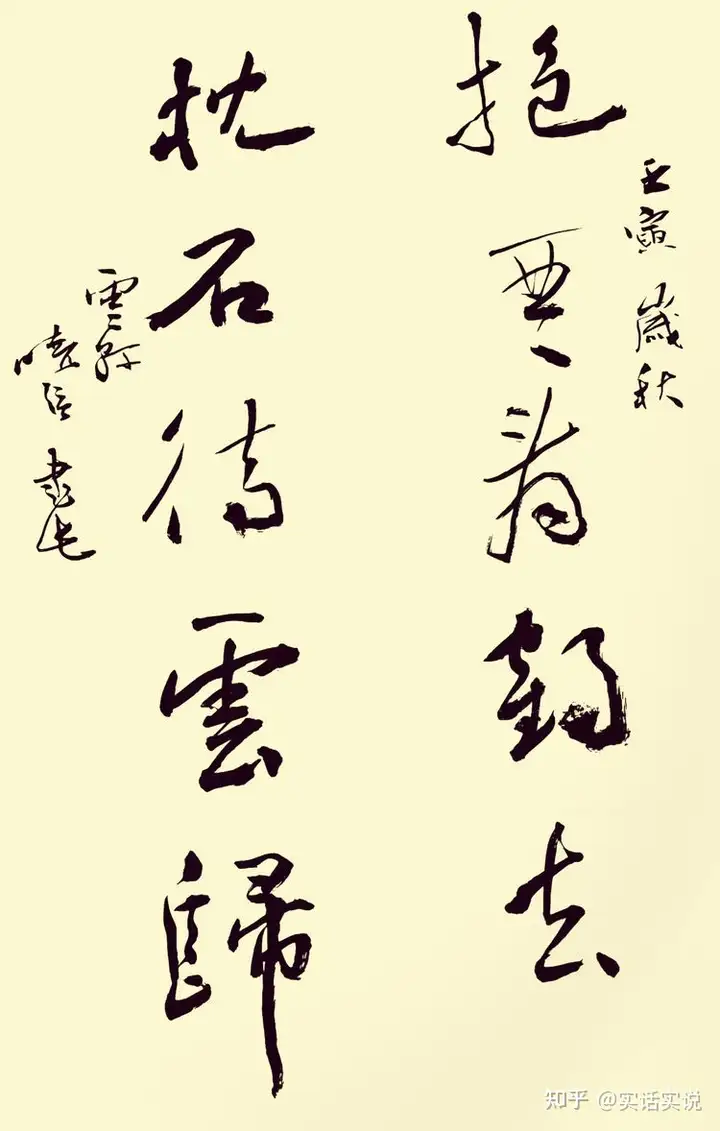 壬寅歲秋
抱琴看鶴去
枕石待雲歸
雲
書
知乎 @实话实说